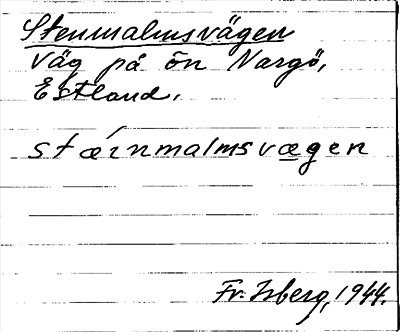 Stenmalmsvägen
Väg på ön Nargö,
Estland.
stǽinmalmsvægen
Fr. Isberg, 1944.